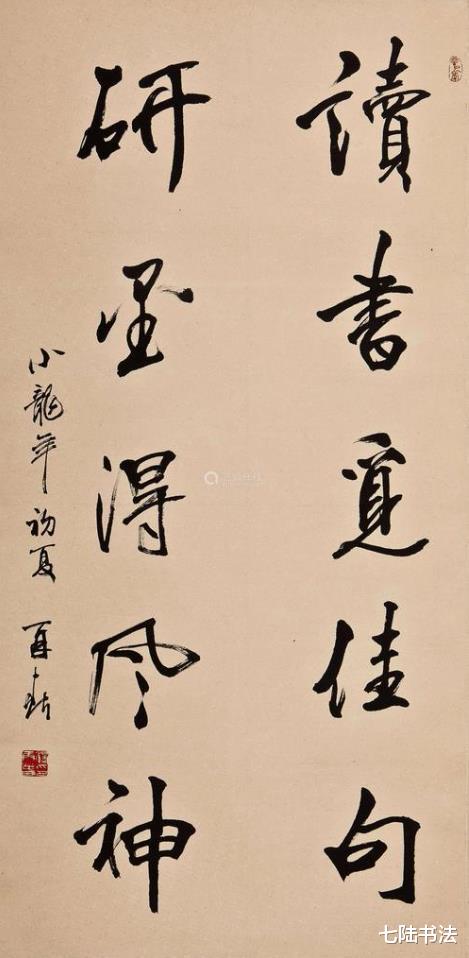 讀書覓佳句
研墨得风神
小龍年初夏
七陆书法